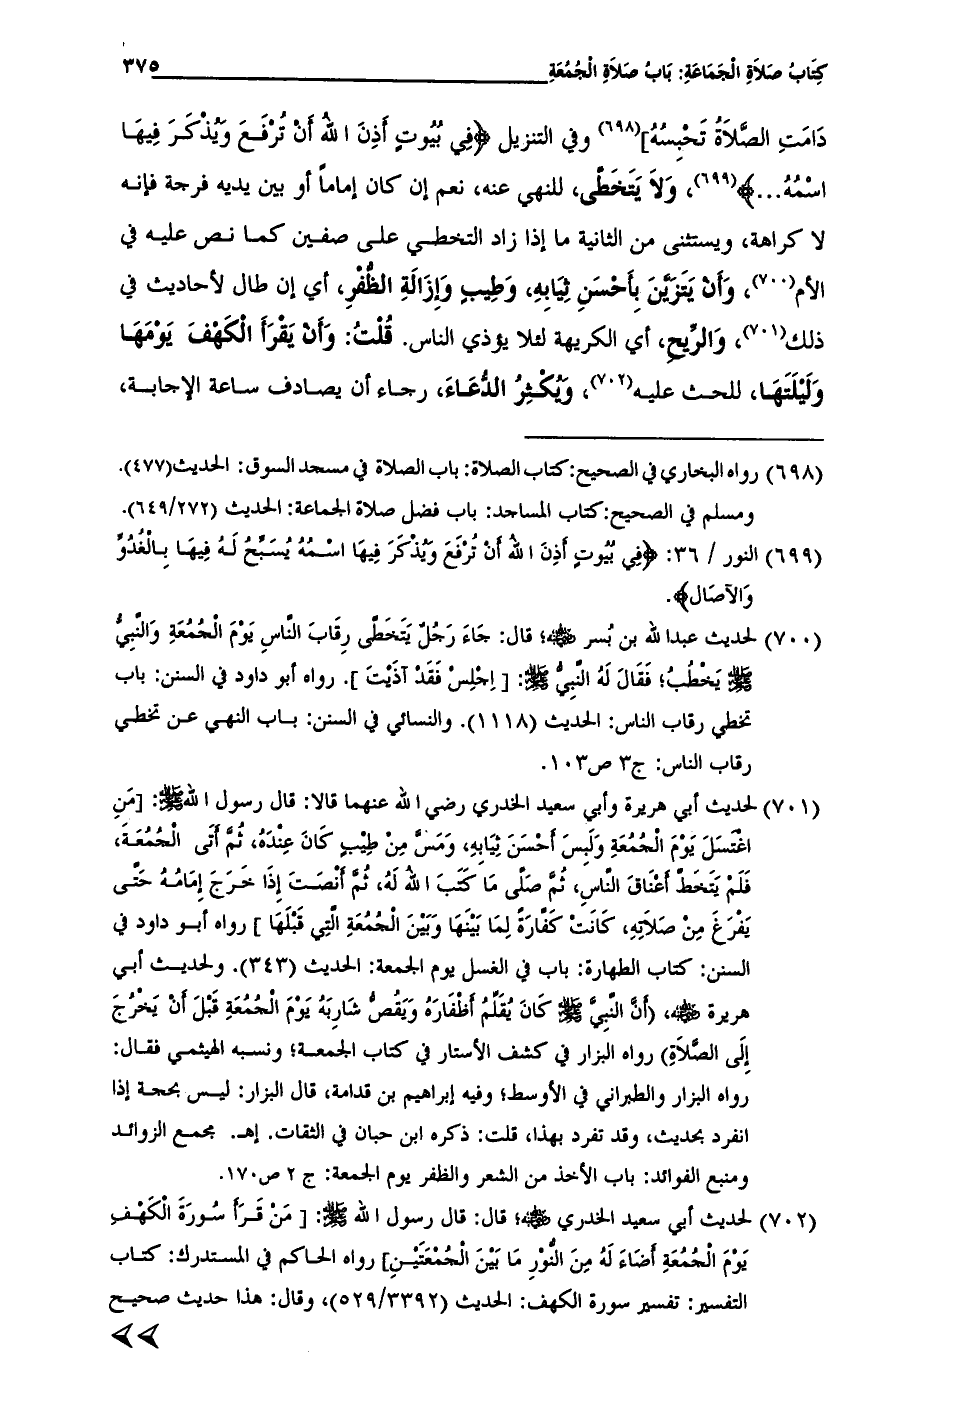 كِتَابُ صَلاَةِ الْجَمَاعَةِ: بَابُ صَلاَةِ الْجُمُعَةِ ٣٧٥
دَامَتِ الصَّلاَةُ تَحْبِسُهُ](٦٩٨) وفي التنزيل ﴿فِي بُيُوتٍ أَذِنَ اللهُ أَنْ تُرْفَعَ وَيُذْكَرَ فِيهَا
اسْمُهُ...﴾(٦٩٩)، وَلاَ يَتَخَطَّى، للنهي عنه، نعم إن كان إماماً أو بين يديه فرجة فإنه
لا كراهة، ويستثنى من الثانية ما إذا زاد التخطي على صفين كما نص عليه في
الأم(٧٠٠)، وَأَنْ يَتَزَيَّنَ بِأَحْسَنِ ثِيَابِهِ، وَطِيبٍ وَإِزَالَةِ الظُّفْرِ، أي إن طال لأحاديث في
ذلك(٧٠١)، وَالرِّيحِ، أي الكريهة لئلا يؤذي الناس. قُلْتُ: وَأَنْ يَقْرَأَ الْكَهْفَ يَوْمَهَا
وَلَيْلَتَهَا، للحث عليه(٧٠٢)، وَيُكْثِرُ الدُّعَاءَ، رجاء أن يصادف ساعة الإجابة،
(٦٩٨) رواه البخاري في الصحيح:كتاب الصلاة: باب الصلاة في مسجد السوق: الحديث(٤٧٧).
ومسلم في الصحيح:كتاب المساجد: باب فضل صلاة الجماعة: الحديث (٦٤٩/٢٧٢).
(٦٩٩) النور / ٣٦: ﴿فِي بُيُوتٍ أَذِنَ اللهُ أَنْ تُرْفَعَ وَيُذْكَرَ فِيهَا اسْمُهُ يُسَبِّحُ لَهُ فِيهَا بِالْغُدُوِّ
وَالآصَالِ﴾.
(٧٠٠) لحديث عبدالله بن بُسر ﷺ؛ قال: جَاءَ رَجُلٌ يَتَخَطَّى رِقَابَ النَّاسِ يَوْمَ الْجُمُعَةِ وَالنَّبِيُّ
ﷺ يَخْطُبُ؛ فَقَالَ لَهُ النَّبِيُّ ﷺ: [ اِجْلِسْ فَقَدْ آذَيْتَ ]. رواه أبو داود في السنن: باب
تخطي رقاب الناس: الحديث (١١١٨). والنسائي في السنن: باب النهي عن تخطي
رقاب الناس: ج٣ ص١٠٣.
(٧٠١) لحديث أبي هريرة وأبي سعيد الخدري رضي الله عنهما قالا: قال رسول اللهﷺ: [مَنِ
اغْتَسَلَ يَوْمَ الْجُمُعَةِ وَلَبِسَ أَحْسَنَ ثِيَابِهِ، وَمَسَّ مِنْ طِيْبٍ كَانَ عِنْدَهُ، ثُمَّ أَتَى الْجُمُعَةَ،
فَلَمْ يَتَخَطَّ أَعْنَاقَ النَّاسِ، ثُمَّ صَلَّى مَا كَتَبَ اللهُ لَهُ، ثُمَّ أَنْصَتَ إِذَا خَرَجَ إِمَامُهُ حَتَّى
يَفْرَغَ مِنْ صَلاَتِهِ، كَانَتْ كَفَّارَةً لِمَا بَيْنَهَا وَبَيْنَ الْجُمُعَةِ الَّتِي قَبْلَهَا ] رواه أبو داود في
السنن: كتاب الطهارة: باب في الغسل يوم الجمعة: الحديث (٣٤٣). ولحديث أبي
هريرة ﷺ، (أَنَّ النَّبِيَّ ﷺ كَانَ يُقَلِّمُ أَظْفَارَهُ وَيَقُصُّ شَارِبَهُ يَوْمَ الْجُمُعَةِ قَبْلَ أَنْ يَخْرُجَ
إِلَى الصَّلاَةِ) رواه البزار في كشف الأستار في كتاب الجمعة؛ ونسبه الهيثمي فقال:
رواه البزار والطبراني في الأوسط؛ وفيه إبراهيم بن قدامة، قال البزار: ليس بحجة إذا
انفرد بحديث، وقد تفرد بهذا، قلت: ذكره ابن حبان في الثقات. إهـ. مجمع الزوائد
ومنبع الفوائد: باب الأخذ من الشعر والظفر يوم الجمعة: ج ٢ ص١٧٠.
(٧٠٢) لحديث أبي سعيد الخدري ﷺ؛ قال: قال رسول الله ﷺ: [ مَنْ قَرَأَ سُورَةَ الْكَهْفِ
يَوْمَ الْجُمُعَةِ أَضَاءَ لَهُ مِنَ النُّوْرِ مَا بَيْنَ الْجُمُعَتَيْنِ] رواه الحاكم في المستدرك: كتاب
التفسير: تفسير سورة الكهف: الحديث (٥٢٩/٣٣٩٢)، وقال: هذا حديث صحيح